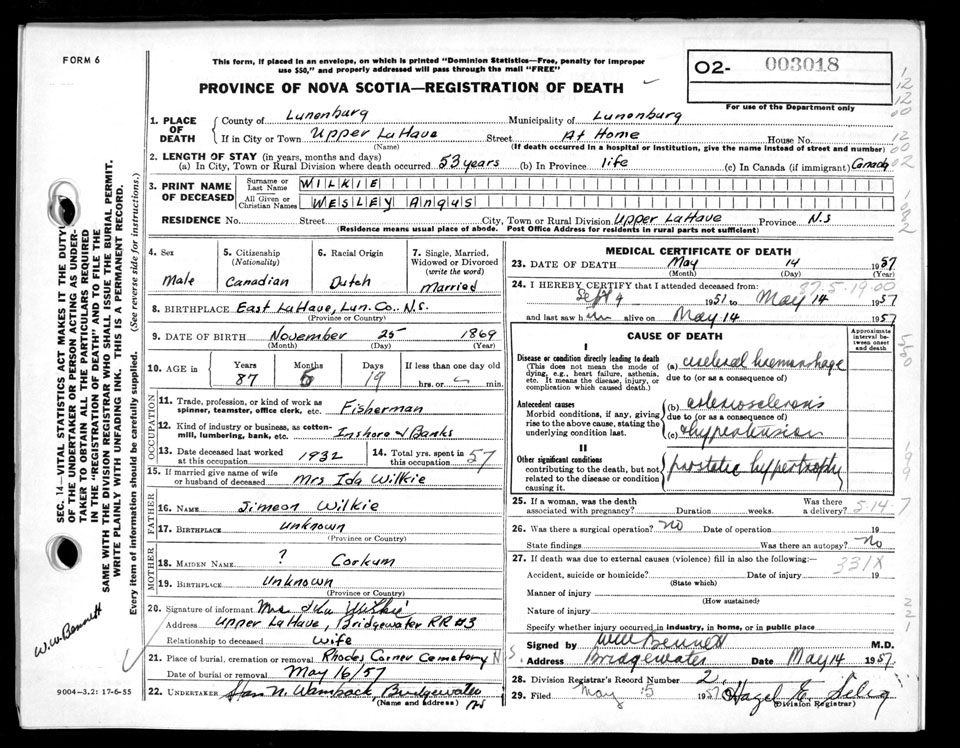 FORM 6
This form, if placed in an envelope, on which is printed "Dominion Statistics—Free, penalty for improper
use $50," and properly addressed will pass through the mail "FREE"
PROVINCE OF NOVA SCOTIA—REGISTRATION OF DEATH
02- 003018
For use of the Department only
1. PLACE OF DEATH
County of Lunenburg Municipality of Lunenburg
If in City or Town Upper LaHave Street At Home House No.
(Name) (If death occurred in a hospital or institution, give the name instead of street and number)
2. LENGTH OF STAY (in years, months and days)
(a) In City, Town or Rural Division where death occurred 53 years (b) In Province life (c) In Canada (if immigrant) Canada
3. PRINT NAME OF DECEASED
Surname or Last Name WILKIE
All Given or Christian Names WESLEY Angus
RESIDENCE No. Street City, Town or Rural Division Upper LaHave Province N.S
(Residence means usual place of abode. Post Office Address for residents in rural parts not sufficient)
4. Sex Male
5. Citizenship (Nationality) Canadian
6. Racial Origin Dutch
7. Single, Married, Widowed or Divorced (write the word) Married
8. BIRTHPLACE East LaHave, Lun. Co. N.S.
(Province or Country)
9. DATE OF BIRTH November 25 1869
(Month) (Day) (Year)
10. AGE in Years 87 Months 5 Days 19 If less than one day old hrs. or min.
OCCUPATION
11. Trade, profession, or kind of work as spinner, teamster, office clerk, etc. Fisherman
12. Kind of industry or business, as cotton-mill, lumbering, bank, etc. Inshore & Banks
13. Date deceased last worked at this occupation 1932
14. Total yrs. spent in this occupation 57
15. If married give name of wife or husband of deceased Mrs Ida Wilkie
FATHER
16. NAME Simeon Wilkie
17. BIRTHPLACE Unknown
(Province or Country)
MOTHER
18. MAIDEN NAME ? Corkum
19. BIRTHPLACE Unknown
(Province or Country)
20. Signature of informant Mrs. Ida Wilkie
Address Upper LaHave, Bridgewater RR #3
Relationship to deceased wife
21. Place of burial, cremation or removal Rhodes Corner Cemetery N S
Date of burial or removal May 16/57
22. UNDERTAKER N. Wamback, Bridgewater NS
(Name and address)
9004—3.2: 17-6-55
MEDICAL CERTIFICATE OF DEATH
23. DATE OF DEATH May 14 1957
(Month) (Day) (Year)
24. I HEREBY CERTIFY that I attended deceased from: 37-5-19-00
Sept 9 1951 to May 14 1957
and last saw him alive on May 14 1957
CAUSE OF DEATH
Approximate interval between onset and death
I
Disease or condition directly leading to death
(This does not mean the mode of dying, e.g., heart failure, asthenia, etc. It means the disease, injury, or complication which caused death.)
(a) cerebral haemorrhage
due to (or as a consequence of)
Antecedent causes
Morbid conditions, if any, giving rise to the above cause, stating the underlying condition last.
(b) arteriosclerosis
due to (or as a consequence of)
(c) Hypertension
II
Other significant conditions
contributing to the death, but not related to the disease or condition causing it.
prostatic hypertrophy
25. If a woman, was the death associated with pregnancy? Duration weeks. Was there a delivery? 5-14-7
26. Was there a surgical operation? no Date of operation 19
State findings Was there an autopsy? No
27. If death was due to external causes (violence) fill in also the following:— 331X
Accident, suicide or homicide? Date of injury 19
(State which)
Manner of injury
(How sustained)
Nature of injury
Specify whether injury occurred in industry, in home, or in public place
Signed by WW Bennett M.D.
Address Bridgewater Date May 14 1957
28. Division Registrar's Record Number 2
29. Filed May 15 1957 Hazel E. Selig
(Division Registrar)
SEC. 14—VITAL STATISTICS ACT MAKES IT THE DUTY
OF THE UNDERTAKER OR PERSON ACTING AS UNDER-
TAKER TO OBTAIN ALL THE PARTICULARS REQUIRED
IN THE "REGISTRATION OF DEATH" AND TO FILE THE
SAME WITH THE DIVISION REGISTRAR WHO SHALL ISSUE THE BURIAL PERMIT.
WRITE PLAINLY WITH UNFADING INK. THIS IS A PERMANENT RECORD.
Every item of information should be carefully supplied. (See reverse side for instructions.)
W.W. Bennett